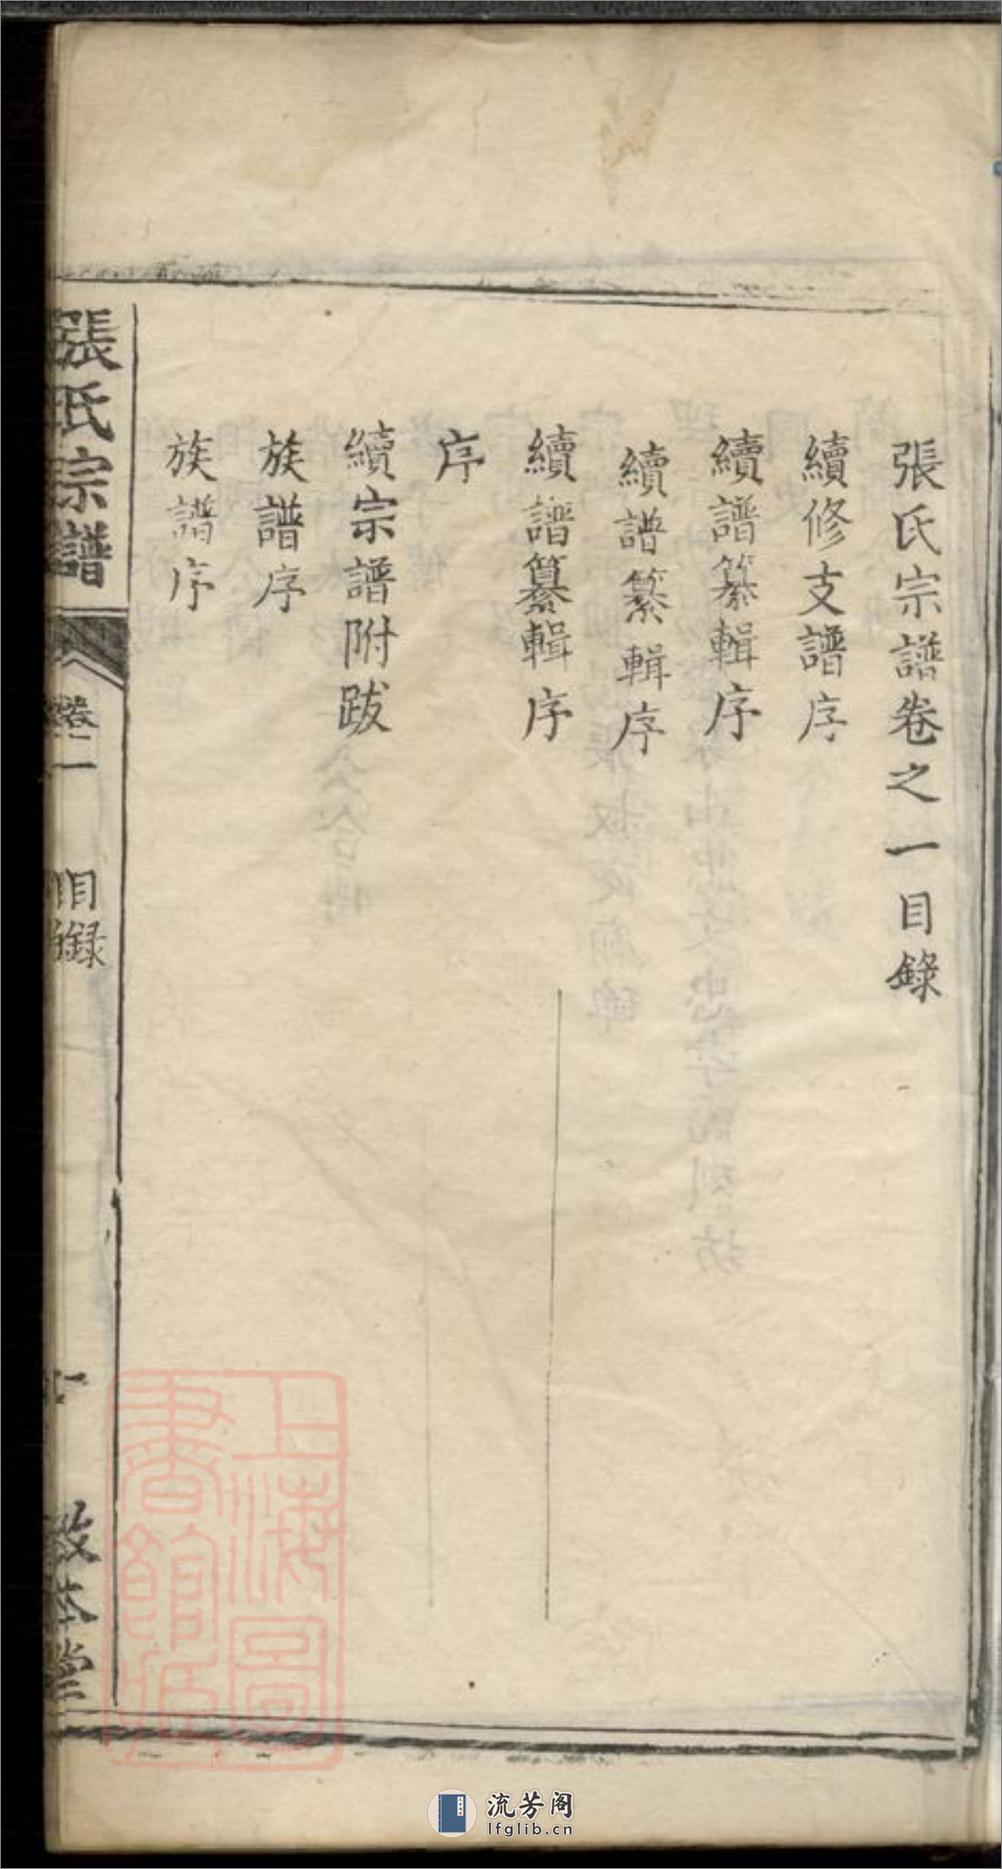 張氏宗譜卷之一目錄
續修支譜序
續譜纂輯序
續譜纂輯序
續譜纂輯序
序
續宗譜附跋
族譜序
族譜序
張氏宗譜
卷一
目録
一
敦本堂
上海圖
書館藏
流芳阁
lfglib.cn